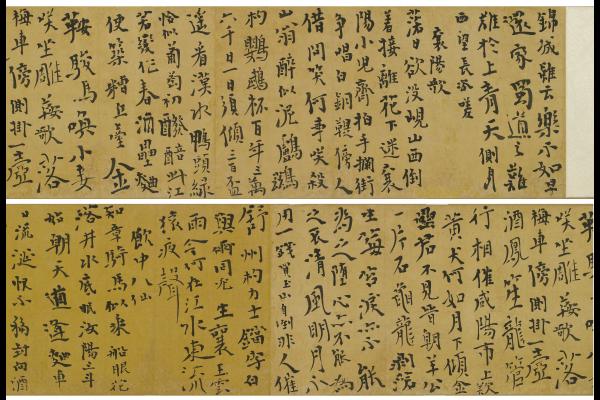 錦城雖云樂不如早
還家蜀道之難
難於上青天側身
西望長咨嗟
襄陽歌
落日欲沒峴山西倒
著接離花下迷襄
陽小兒齊拍手攔街
爭唱白銅鞮傍人
借問笑何事笑殺
山翁醉似泥鸕鶿
杓鸚鵡杯百年三萬
六千日一日須傾三百盃
遙看漢水鴨頭綠
恰似葡萄初醱醅此江
若變作春酒壘麴
便築糟丘臺金
鞍駿馬喚小妾
笑坐雕鞍歌落
梅車傍側掛一壺
笑坐雕鞍歌落
梅車傍側掛一壺
酒鳳笙龍管
行相催咸陽市上歎
黃犬何如月下傾金
罍君不見晉朝羊公
一片石龜龍剝落
生莓苔淚亦不能
為之墮心亦不能為
之哀清風明月不
用一錢買玉山自倒非人催
舒州杓力士鐺李白
與爾同死生襄王雲
雨今何在江水東流
猿夜聲
飲中八仙
知章騎馬似乘船眼花
落井水底眠汝陽三斗
始朝天道逢麴車
口流涎恨不移封向酒